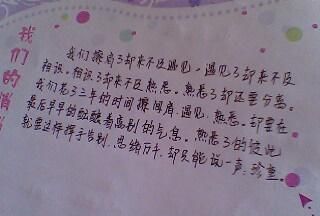 我们的消
我们擦肩了却来不及遇见，遇见了却来不及
相识。相识了却来不及熟悉。熟悉了却还要分离。
我们花了三年的时间擦间肩、遇见、熟悉。却要在
最后早早的散发着离别的气息。熟悉了的彼此
就要这样挥手告别，思绪万千，却只能说一声：珍重。